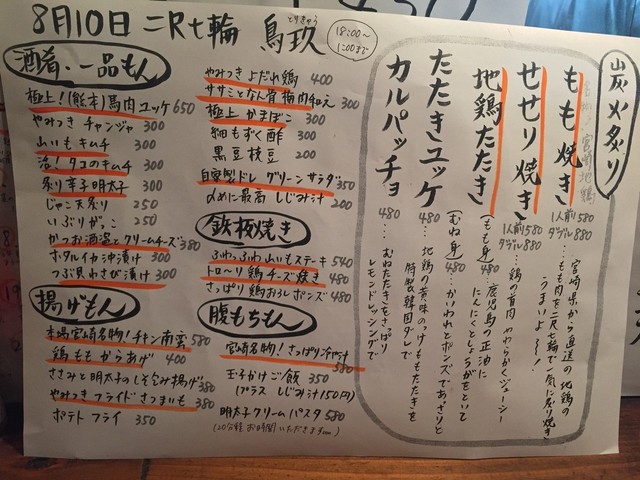 8月10日 二尺七輪 鳥玖
とりきゅう
18:00〜
1:00まで
酒肴、一品もん
極上!(熊本)馬肉ユッケ 650
やみつき チャンジャ 300
山いもキムチ 300
活!タコのキムチ 300
炙り辛子明太子 300
じゃこ天炙り 250
いぶりがっこ 250
かつお酒盗とクリームチーズ 380
ホタルイカ沖漬け 300
つぶ貝わさび漬け 300
揚げもん
本場宮崎名物!チキン南蛮 580
鶏ももからあげ 400
ささみと明太子のしそ包み揚げ 380
やみつきフライドさつまいも 380
ポテトフライ 350
やみつきよだれ鶏 400
ササミとなん骨梅肉和え 300
極上かまぼこ 300
細もずく酢 300
黒豆枝豆 200
自家製ドレ グリーンサラダ 350
〆めに最高 しじみ汁 200
鉄板焼き
ふわっふわ山いもステーキ 540
トローリ鶏チーズ焼き 480
さっぱり鶏おろしポンズ 480
腹もちもん
宮崎名物!さっぱり冷や汁 580
玉子かけご飯 350
(プラス しじみ汁150円)
明太子クリームパスタ 580
(20分程お時間いただきます)
炭火炙り
宮崎地鶏
もも焼き 1人前580
ダブル880
宮崎県から直送の地鶏の
もも肉を二尺七輪で一気に炙り焼き
うまいよ〜!
せせり焼き 1人前580
ダブル880
鶏の首肉 やわらかくジューシー
地鶏たたき
(もも身)480
鹿児島の正油に
にんにくとしょうがをといて
(むね身)480
かいわれとポンズであっさりと
たたきユッケ 480
地鶏の黄味のっけももたたきを
特製韓国ダレで
カルパッチョ 480
むねたたきをさっぱり
レモンドレッシングで